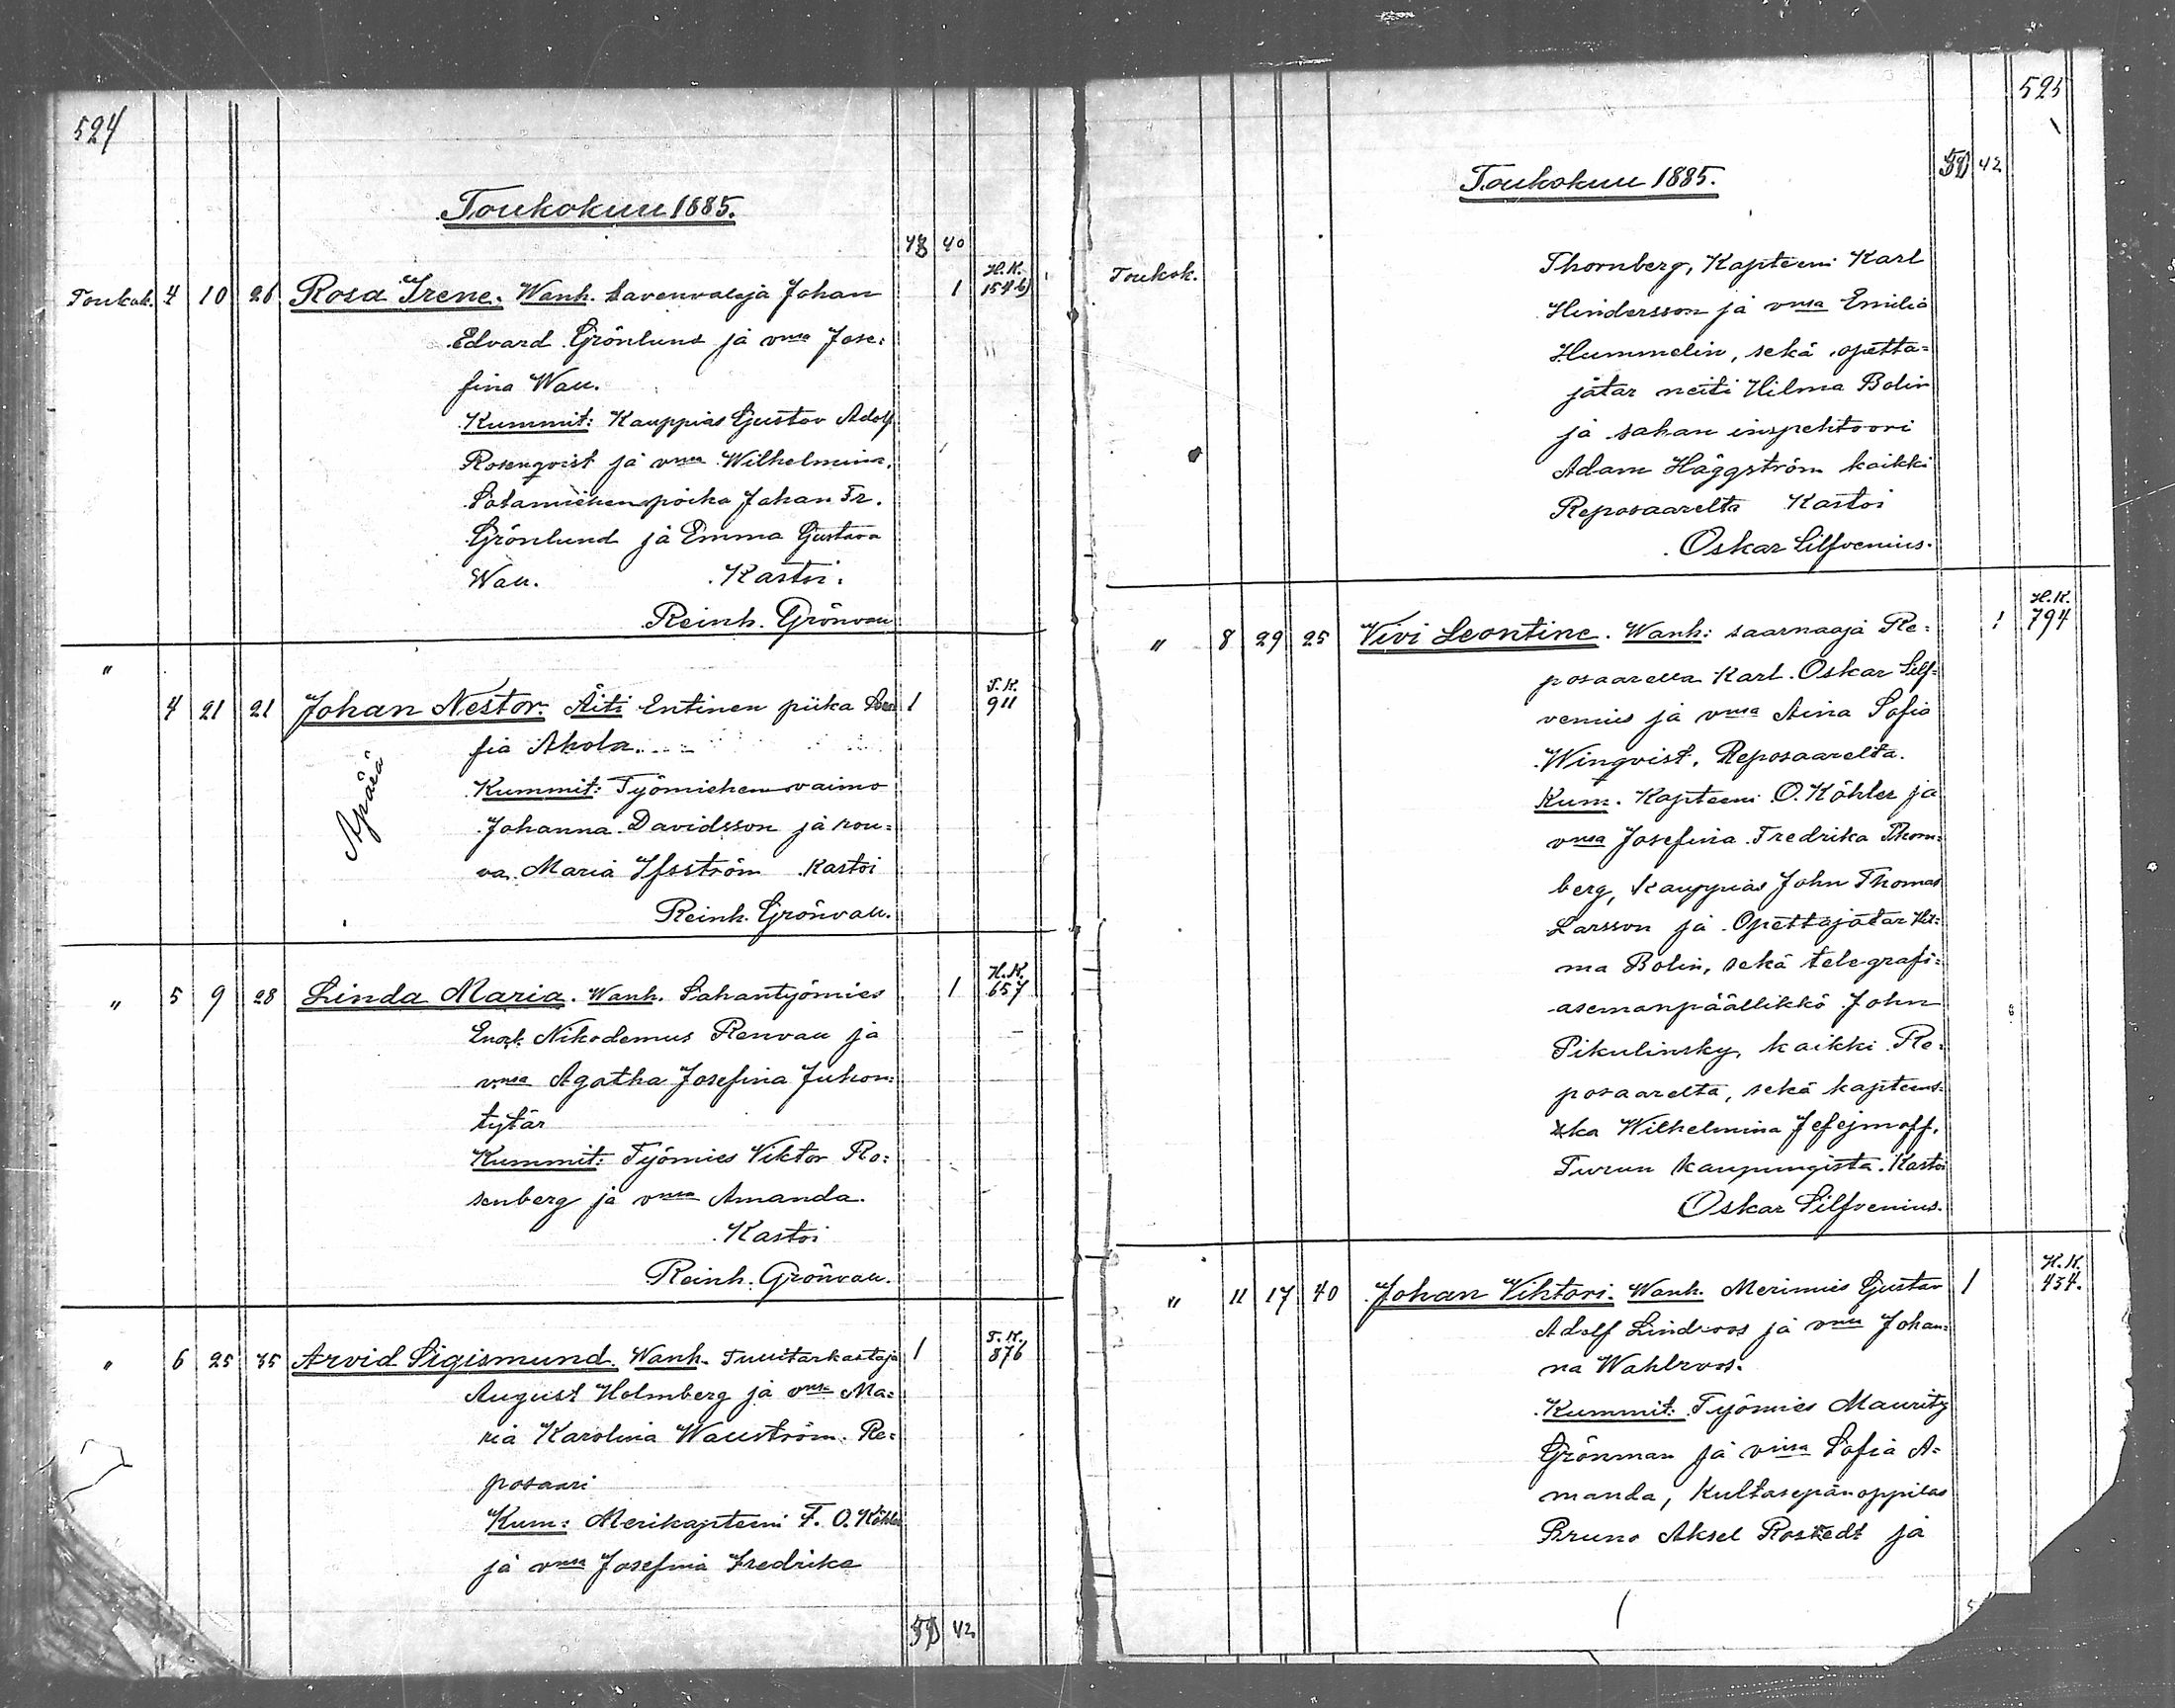 524
Toukokuu 1885.
48 40
Toukok. 4 10 26 Rosa Irene. Wanh. Savenvalaja Johan 1 H.K. 154 b)
Edvard Grönlund ja vmsa Jose=
fina Wall.
Kummit: Kauppias Gustav Adolf
Rosenqvist ja vmsa Wilhelmina,
Sotamiehenpoika Johan Fr.
Grönlund ja Emma Gustava
Wall. Kastoi:
Reinh. Grönvall
" 4 21 21 Johan Nestor. Äiti Entinen piika 1 T.K. 911
fia Ahola.
Äpärä
Kummit: Työmiehen vaimo
Johanna Davidsson ja rou=
va Maria Ifsström Kastoi
Reinh. Grönvall.
" 5 9 28 Linda Maria. Wanh. Sahantyömies 1 H.K. 657
Enok Nikodemus Renvall ja
vmsa Agatha Josefina Juhon=
tytär
Kummit: Työmies Viktor Ro=
senberg ja vmsa Amanda.
Kastoi
Reinh. Grönvall.
" 6 25 35 Arvid Sigismund. Wanh. Tullitarkastaja 1 T.K. 876
August Holmberg ja vmsa Ma=
ria Karolina Wallström. Re=
posaari
Kum: Merikapteeni F. O. Köhler
ja vmsa Josefina Fredrika
50 42
525
Toukokuu 1885.
50 42
Toukok. Thornberg, Kapteeni Karl
Hindersson ja vmsa Emilia
Hummelin, sekä opetta=
jatar neiti Hilma Bolin
ja sahan inspehtoori
Adam Häggström kaikki
Reposaarelta Kastoi
Oskar Silfvenius.
" 8 29 25 Vivi Leontine. Wanh: saarnaaja Re= 1 H.K. 794
posaarella Karl Oskar Silf=
venius ja vmsa Aina Sofia
Winqvist, Reposaarelta.
Kum. Kapteeni O. Köhler ja
vmsa Josefina Fredrika Thorn=
berg, Kauppias John Thomas
Larsson ja Opettajatar Hil=
ma Bolin, sekä telegrafi=
asemanpäällikkö John
Pikulinsky, kaikki Re=
posaarelta, sekä kapteens=
ka Wilhelmina Jefejmoff,
Turun kaupungista. Kastoi
Oskar Silfvenius.
" 11 17 40 Johan Vihtori. Wanh. Merimies Gustav 1 H.K. 434.
Adolf Lindroos ja vmsa Johan=
na Wahlroos.
Kummit: Työmies Mauritz
Grönman ja vmsa Sofia A=
manda, Kultasepänoppilas
Bruno Aksel Rostedt ja